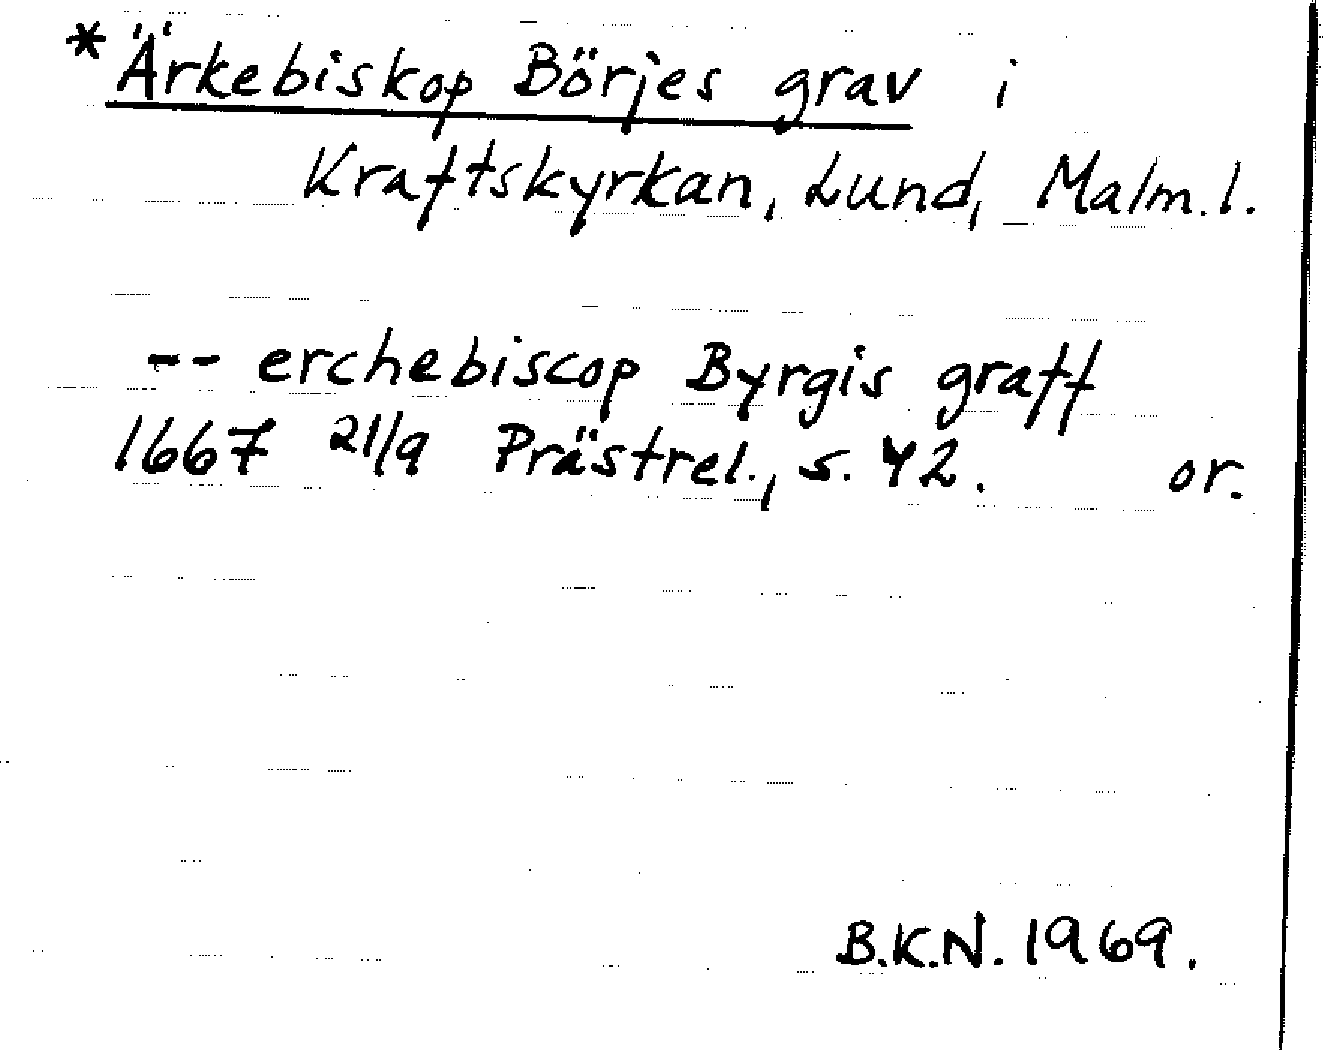 *Ärkebiskop Börjes grav i
Kraftskyrkan, Lund, Malm.l.
-- erchebiscop Byrgis graff
1667 21/9 Prästrel., s. 42. or.
B.K.N. 1969.